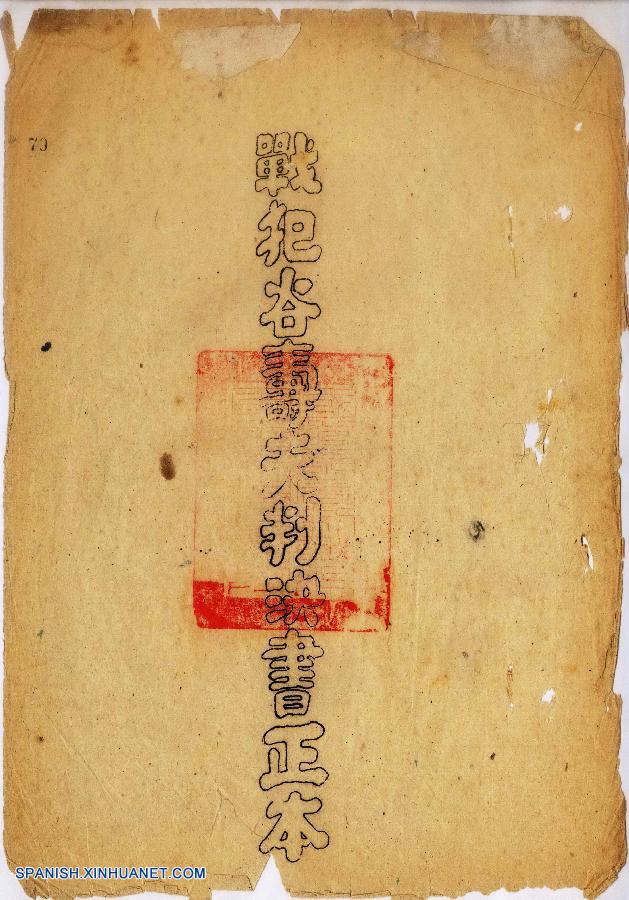 79
戰犯谷壽夫判決書正本
SPANISH.XINHUANET.COM